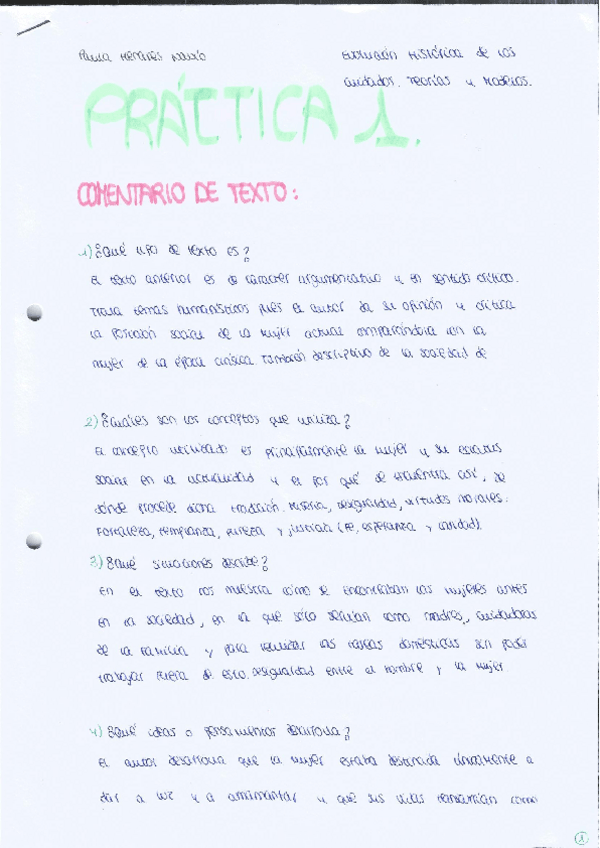 Paula Henares
Evolución Histórica de los
cuidados. Teorías y Modelos.
PRÁCTICA 1.
COMENTARIO DE TEXTO:
1) ¿Qué tipo de texto es?
El texto anterior es de carácter argumentativo y en sentido crítico.
Trata temas humanísticos pues el autor da su opinión y critica
la posición social de la mujer actual comparándola con la
mujer de la época clásica. También descriptivo de la sociedad de
2) ¿Cuáles son los conceptos que utiliza?
El concepto utilizado es principalmente la mujer y su estatus
social en la actualidad y el por qué de encuentra así, de
dónde procede dicha tradición. Miseria, desigualdad, virtudes morales:
Fortaleza, templanza, pureza y justicia (fe, esperanza y caridad).
3) ¿Qué situaciones describe?
En el texto nos muestra cómo se encontraban las mujeres antes
en la sociedad, en la que sólo servían como madres, cuidadoras
de la familia y para realizar las tareas domésticas sin poder
trabajar fuera de esto. Desigualdad entre el hombre y la mujer.
4) ¿Qué ideas o pensamientos desarrolla?
El autor desarrolla que la mujer estaba destinada únicamente a
dar a luz y a amamantar y que sus vidas transcurrían como
1